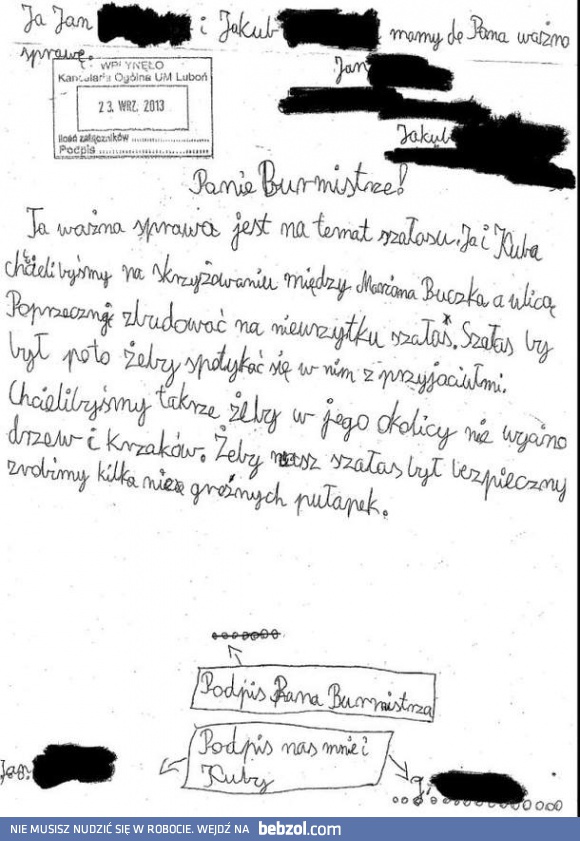 Ja Jan i Jakub mamy do Pana ważno
sprawę.
WPŁYNĘŁO
Kancelaria Ogólna UM Luboń
23. WRZ. 2013
Ilość załączników
Podpis
Jan
Jakub
Panie Burmistrze!
Ta ważna sprawa jest na temat szałasu. Ja i Kuba
chcielibyśmy na skrzyżowaniu między Mariana Buczka a ulicą
Poprzeczną zbudować na nieurzytku szałas. Szałas by
był poto żeby spotykać się w nim z przyjaciułmi.
Chcielibyśmy takrze żeby w jego okolicy nie wycino
drzew i krzaków. Żeby nasz szałas był bezpieczny
zrobimy kilka nie groźnych pułapek.
Podpis Pana Burmistrza
Podpis nas mnie i
Kuby
Jan
NIE MUSISZ NUDZIĆ SIĘ W ROBOCIE. WEJDŹ NA bebzol.com